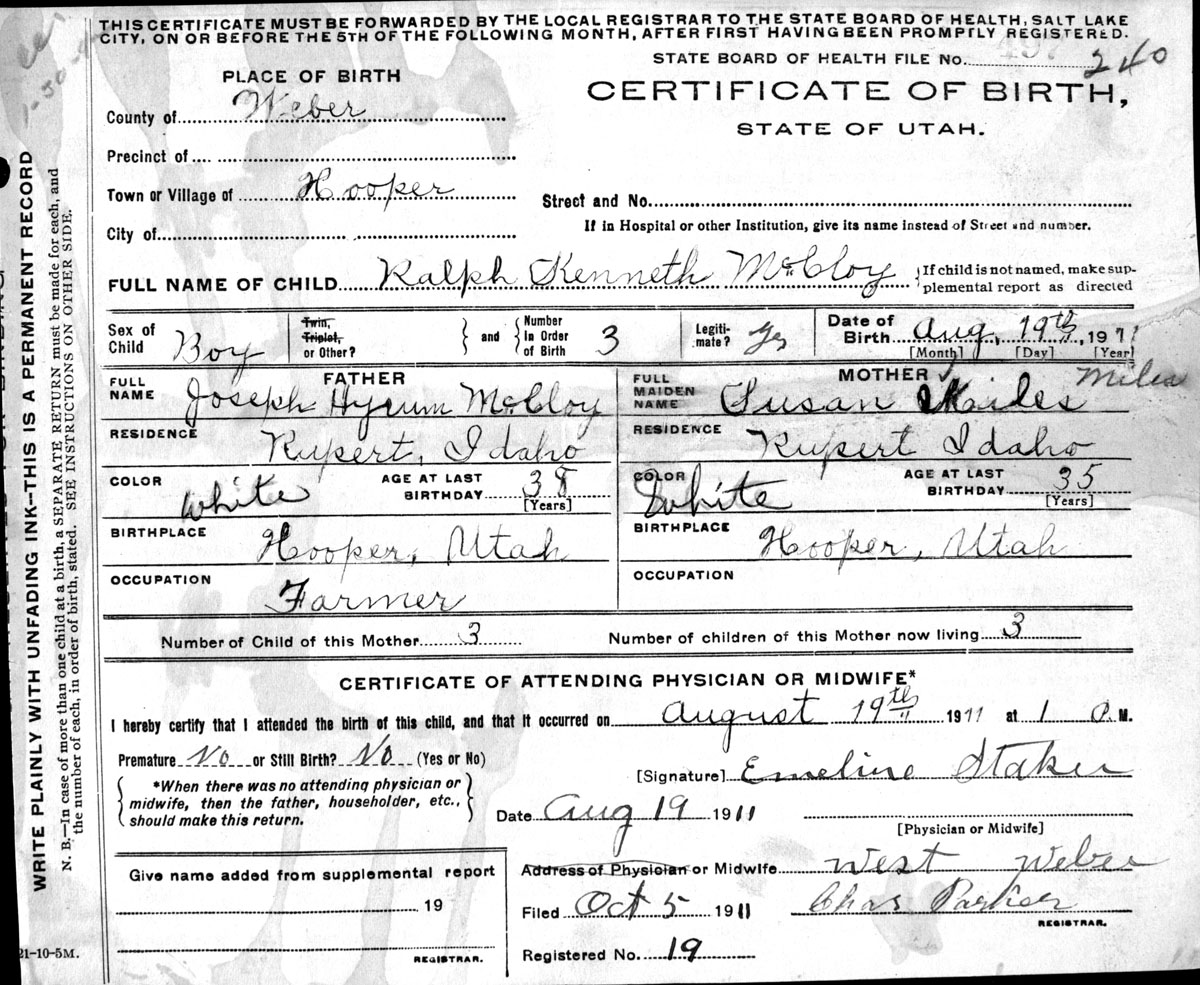 THIS CERTIFICATE MUST BE FORWARDED BY THE LOCAL REGISTRAR TO THE STATE BOARD OF HEALTH, SALT LAKE
CITY, ON OR BEFORE THE 5TH OF THE FOLLOWING MONTH, AFTER FIRST HAVING BEEN PROMPTLY REGISTERED.
STATE BOARD OF HEALTH FILE No. 497 240
PLACE OF BIRTH
CERTIFICATE OF BIRTH,
STATE OF UTAH.
County of Weber
Precinct of
Town or Village of Hooper
Street and No.
City of
If in Hospital or other Institution, give its name instead of Street and number.
FULL NAME OF CHILD Ralph Kenneth McCloy
{If child is not named, make sup-
plemental report as directed
Sex of Child Boy
Twin, Triplet, or Other?
} and { Number in Order of Birth 3
Legiti-mate? Yes
Date of Birth Aug. 19th, 1911
[Month] [Day] [Year]
FATHER
MOTHER
FULL NAME Joseph Hyrum McCloy
FULL MAIDEN NAME Susan Miles
RESIDENCE Rupert, Idaho
RESIDENCE Rupert Idaho
COLOR White AGE AT LAST BIRTHDAY 38 [Years]
COLOR White AGE AT LAST BIRTHDAY 35 [Years]
BIRTHPLACE Hooper, Utah
BIRTHPLACE Hooper, Utah
OCCUPATION Farmer
OCCUPATION
Number of Child of this Mother 3 Number of children of this Mother now living 3
CERTIFICATE OF ATTENDING PHYSICIAN OR MIDWIFE*
I hereby certify that I attended the birth of this child, and that it occurred on August 19th 1911 at 1 a M.
Premature No or Still Birth? No (Yes or No)
[Signature] Emeline Staker
{ *When there was no attending physician or
midwife, then the father, householder, etc.,
should make this return. }
Date Aug 19 1911
[Physician or Midwife]
Give name added from supplemental report
19
REGISTRAR.
Address of Physician or Midwife West Weber
Filed Oct 5 1911 Chas Parker
REGISTRAR.
Registered No. 19
21-10-5M.
WRITE PLAINLY WITH UNFADING INK--THIS IS A PERMANENT RECORD
N. B.—In case of more than one child at a birth, a SEPARATE RETURN must be made for each, and
the number of each, in order of birth, stated. SEE INSTRUCTIONS ON OTHER SIDE.